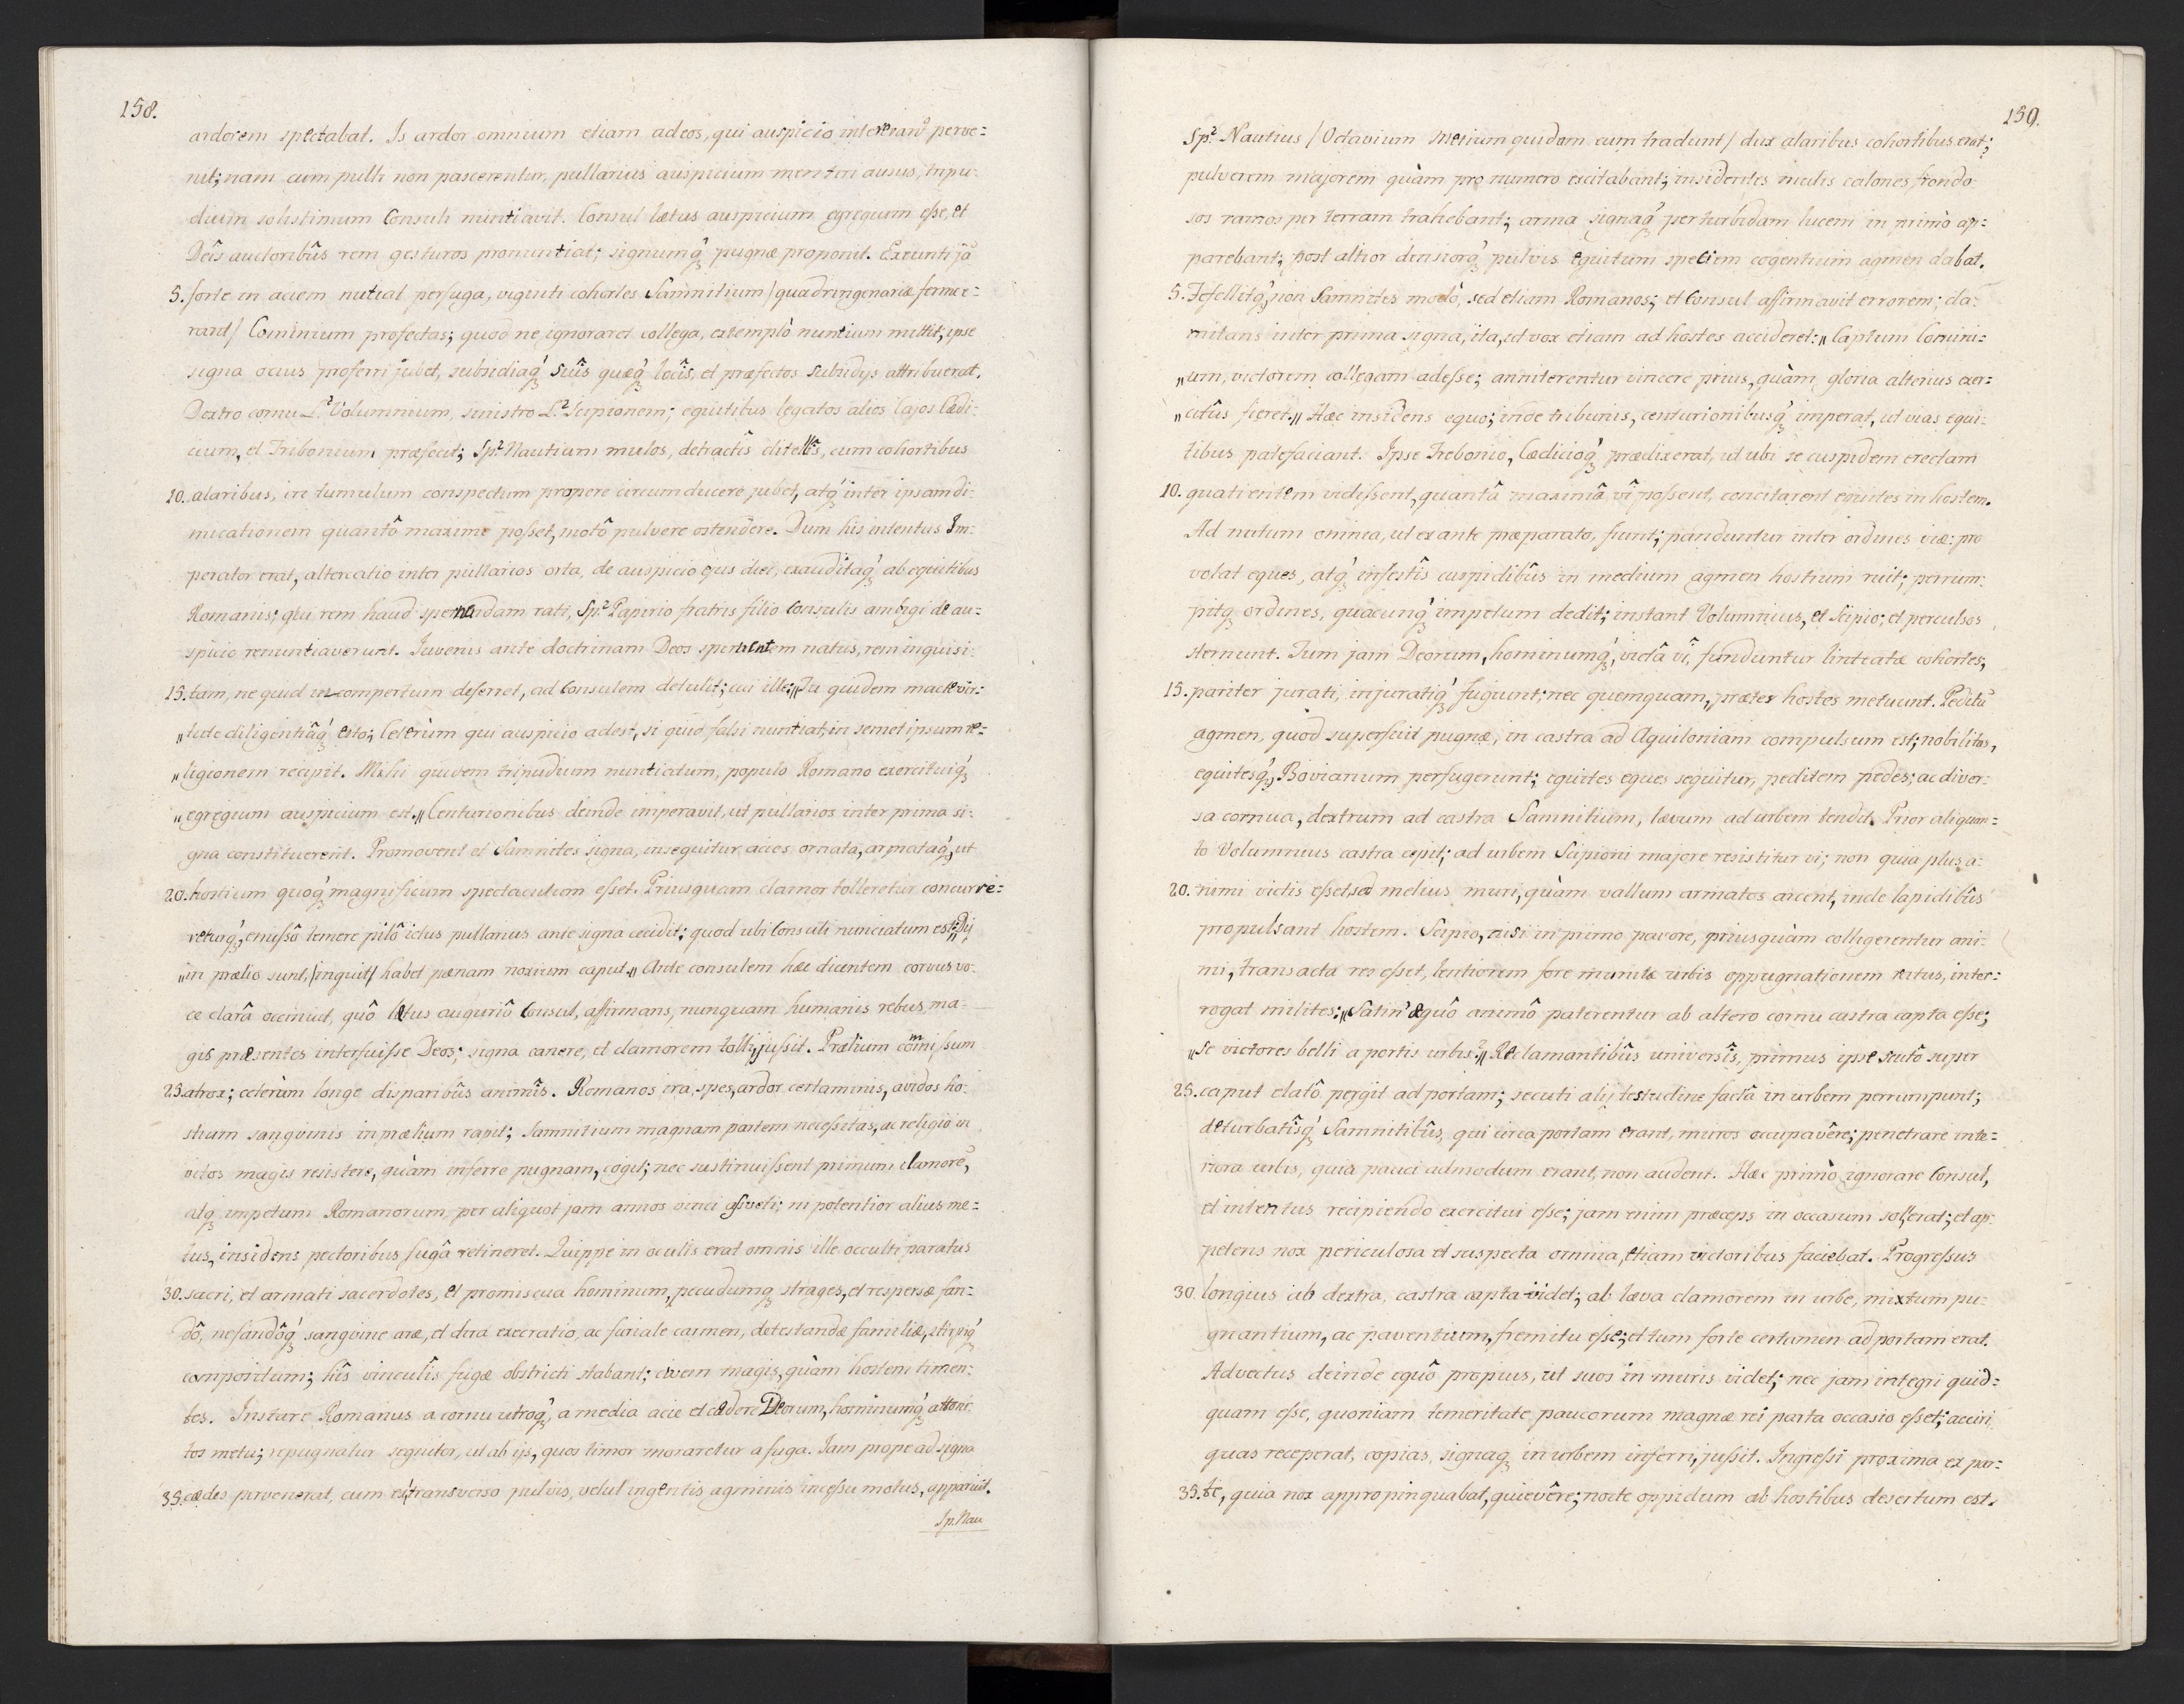 158.
ardorem spectabat. Is ardor omnium etiam ad eos, qui auspicio intererant perve=
nit; nam cum pulli non pascerentur, pullarius auspicium mentiri ausus, tripu-
dium solistimum Consuli nuntiavit. Consul lætus auspicium egregium esse, et
Deîs auctoribûs rem gesturos pronuntiat; signumq́ꝫ pugnæ proponit. Exeunti jā
5. forte in aciem nutiat perfuga, viginti cohortes Samnitium / quadringenariæ ferme e=
rant / Cominium profectas; quod ne ignoraret collega, extemplò nuntium mittit; ipse
signa ocius proferri jubet, subsidiaq́ꝫ suîs quæq́ꝫ locîs, et præfectos subsidijs attribuerat.
Dextro cornu L.² Volumnium, sinistro L.² Scipionem; equitibus legatos alios Cajos Cædi-
cium, et Tribonium præfecit; Sp.² Nautium mulos, detractîs clitellîs, cum cohortibus
10. alaribus, in tumulum conspectum propere circumducere jubet, atq́ꝫ inter ipsam di-
micationem quantô maxime posset, motô pulvere ostendere. Dum his intentus Im-
perator erat, altercatio inter pullarios orta, de auspicio ejus diei, exauditaq́ꝫ ab equitibus
Romanis; qui rem haud spernendam rati, Sp.² Papirio fratris filio Consulis ambigi de au=
spicio renuntiaverunt. Iuvenis ante doctrinam Deos spernentem natus, rem inquisi-
15. tam, ne quid incompertum deferret, ad Consulem detulit; cui ille: „Tu quidem macte vir=
„tute diligentiâq́ꝫ esto; Ceterùm qui auspicio adest, si quid falsi nuntiat, in semet ipsum re=
„ligionem recipit. Mihi quidem tripudium nuntiatum, populo Romano exercituiq́ꝫ
„egregium auspicium est.„ Centurionibus deinde imperavit, ut pullarios inter prima si-
gna constituerent. Promovent et Samnites signa, insequitur acies ornata, armataq́ꝫ, ut
20. hostium quoq́ꝫ magnificum spectaculum esset. Priusquam clamor tolleretur concurre=
returq́ꝫ, emissô temere pilô ictus pullarius ante signa cecidit; quod ubi Consuli nunciatum est; „Dij
„in prælio sunt, /inquit/ habet pœnam noxium caput.„ Ante consulem hæc dicentem corvus vo-
ce clarâ occinuit, quô lætus auguriô Consul, affirmans, nunquam humanis rebus ma-
gis præsentes interfuisse Deos; signa canere, et clamorem tolli jussit. Prælium com̅issum
25. atrox; ceterùm longe disparibûs animîs. Romanos ira, spes, ardor certaminis, avidos ho-
stium sanguinis in prælium rapit; Samnitium magnam partem necessitas, ac religio in
victos magis resistere, quàm inferre pugnam, cogit; nec sustinuissent primum clamorē,
atqꝫ impetum Romanorum, per aliquot jam annos vinci assueti; ni potentior alius me=
tus, insidens pectoribus, fugâ retineret. Quippe in oculis erat omnis ille occulti paratus
30. sacri, et armati sacerdotes, et promiscua hominum, pecudumqꝫ strages, et respersæ fan=
dô, nefandôq́ꝫ sanguine aræ, et dira execratio, ac furiale carmen, detestandæ familiæ, stirpiq́ꝫ
compositum; hîs vinculîs fugæ obstricti stabant; civem magis, quàm hostem timen-
tes. Instare Romanus a cornu utroq́ꝫ, a media acie et cædere Deorum, hominumq́ꝫ attoni-
tos metu; repugnatur segniter, ut ab ijs, quos timor moraretur a fuga. Iam prope ad signa
35. cædes pervenerat, cum ex transverso pulvis, velut ingentis agminis incessu motus, apparuit.
Sp. Nau
159.
Sp.² Nautius / Octavium Metium quidam eum tradunt / dux alaribus cohortibus erat;
pulverem majorem quàm pro numero excitabant; insidentes mulis calones frondo-
sos ramos per terram trahebant; arma signaq́ꝫ per turbidam lucem in primò ap=
parebant; post altior densiorq́ꝫ pulvis equitum speciem cogentium agmen dabat.
5. Fefellitq́ꝫ non Samnites modò, sed etiam Romanos; et Consul affirmavit errorem; cla-
mitans inter prima signa, ita, ut vox etiam ad hostes accideret: „Captum Comini=
„um, victorem collegam adesse; anniterentur vincere prius, quàm gloria alterius exer=
„citûs fieret.„ Hæc insidens equo; inde tribunis, centurionibusq́ꝫ imperat, ut vias equi-
tibus patefaciant. Ipse Trebonio, Cædicioq́ꝫ prædixerat, ut ubi se cuspidem erectam
10. quatientem vidissent, quantâ maximâ vî possent, concitarent equites in hostem.
Ad nutum omnia, ut ex ante præparato, fiunt; panduntur inter ordines viæ: pro
volat eques, atq́ꝫ infestîs cuspidibûs in medium agmen hostium ruit; perrum-
pitqꝫ ordines, quacunq́ꝫ impetum dedit; instant Volumnius, et Scipio; et perculsos
sternunt. Tum jam Deorum, hominumq́ꝫ, victâ vî, funduntur linteatæ cohortes;
15. pariter jurati, injuratiq́ꝫ fugiunt; nec quemquam, præter hostes metuunt. Peditū
agmen, quod superfuit pugnæ, in castra ad Aquiloniam compulsum est; nobilitas,
equitesq́ꝫ, Bovianum perfugerunt; equites eques sequitur, peditem pedes; ac diver-
sa cornua, dextrum ad castra Samnitium, lævum ad urbem tendit. Prior aliquan=
to Volumnius castra cepit; ad urbem Scipioni majore resistitur vi; non quia plus a-
20. nimi victis esset, sed melius muri, quàm vallum armatos arcent, inde lapidibûs
propulsant hostem. Scipio, nisi in primo pavore, priusquàm colligerentur ani-
mi, transacta res esset, lentiorem fore munitæ urbis oppugnationem ratus, inter=
rogat milites: „Satin' æquô animô paterentur ab altero cornu castra capta esse;
„se victores belli a portis urbis?„ Reclamantibûs universîs, primus ipse scutô super
25. caput elatô pergit ad portam; secuti alij testudine factâ in urbem perrumpunt;
deturbatîsq́ꝫ Samnitibûs, qui circa portam erant, muros occupavêre; penetrare inte=
riora urbis, quia pauci admodum erant, non audent. Hæc primò ignorare Consul,
et intentus recipiendo exercitui esse; jam enim præceps in occasum sol erat; et ap-
petens nox periculosa et suspecta omnia, etiam victoribus faciebat. Progressus
30. longius ab dextra, castra capta videt; ab læva clamorem in urbe, mixtum pu-
gnantium, ac paventium, fremitu esse; et tum forte certamen ad portam erat.
Advectus deinde equô propius, ut suos in muris videt; nec jam integri quid=
quam esse, quoniam temeritate paucorum magnæ rei parta occasio esset; acciri
quas receperat, copias, signaqꝫ in urbem inferri, jussit. Ingressi proxima ex par=
35. te, quia nox appropinquabat, quievêre; nocte oppidum ab hostibus desertum est.